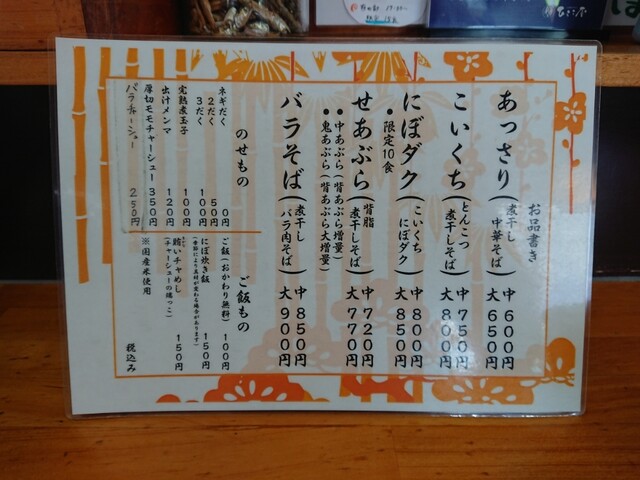 お品書き
あっさり(煮干し中華そば) 中600円 大650円
こいくち(とんこつ煮干しそば) 中750円 大800円
にぼダク(こいくちにぼダク) 中800円 大850円
●限定10食
せあぶら(背脂煮干しそば) 中720円 大770円
●中あぶら(背あぶら増量)
●鬼あぶら(背あぶら大増量)
バラそば(煮干しバラ肉そば) 中850円 大900円
のせもの
ネギだく 0円
2だく 50円
3だく 100円
完熟煮玉子 100円
出汁メンマ 120円
厚切モモチャーシュー 350円
バラチャーシュー 250円
ご飯もの
ご飯(おかわり無料) 100円
にぼ炊き飯 150円
(季節により具材が変わる場合があります)
賄いチャめし 150円
(チャーシューの端っこ)
※国産米使用
税込み